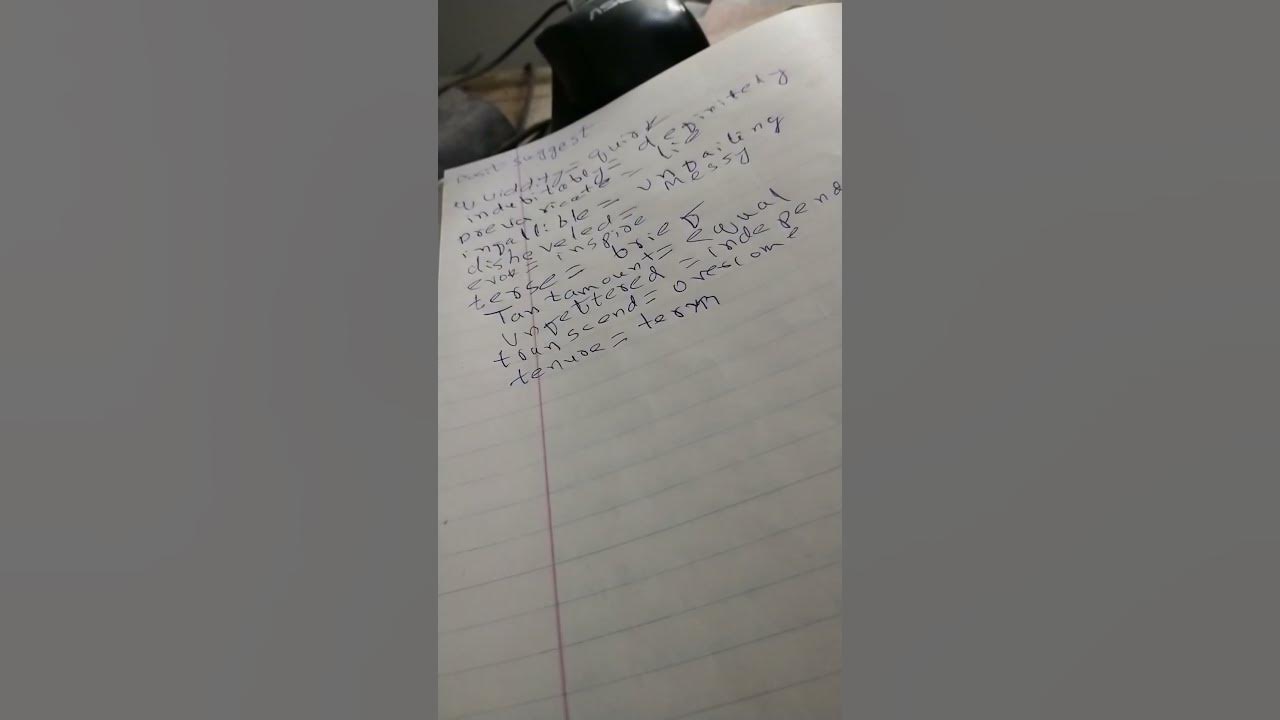 Posit suggest
quiddity = quirk
indubitably = definitely
prevaricate = lie
infallible = unfailing
disheveled = messy
evoke = inspire
terse = brief
Tantamount = Equal
unfettered = independ
transcend = overcome
tenure = term